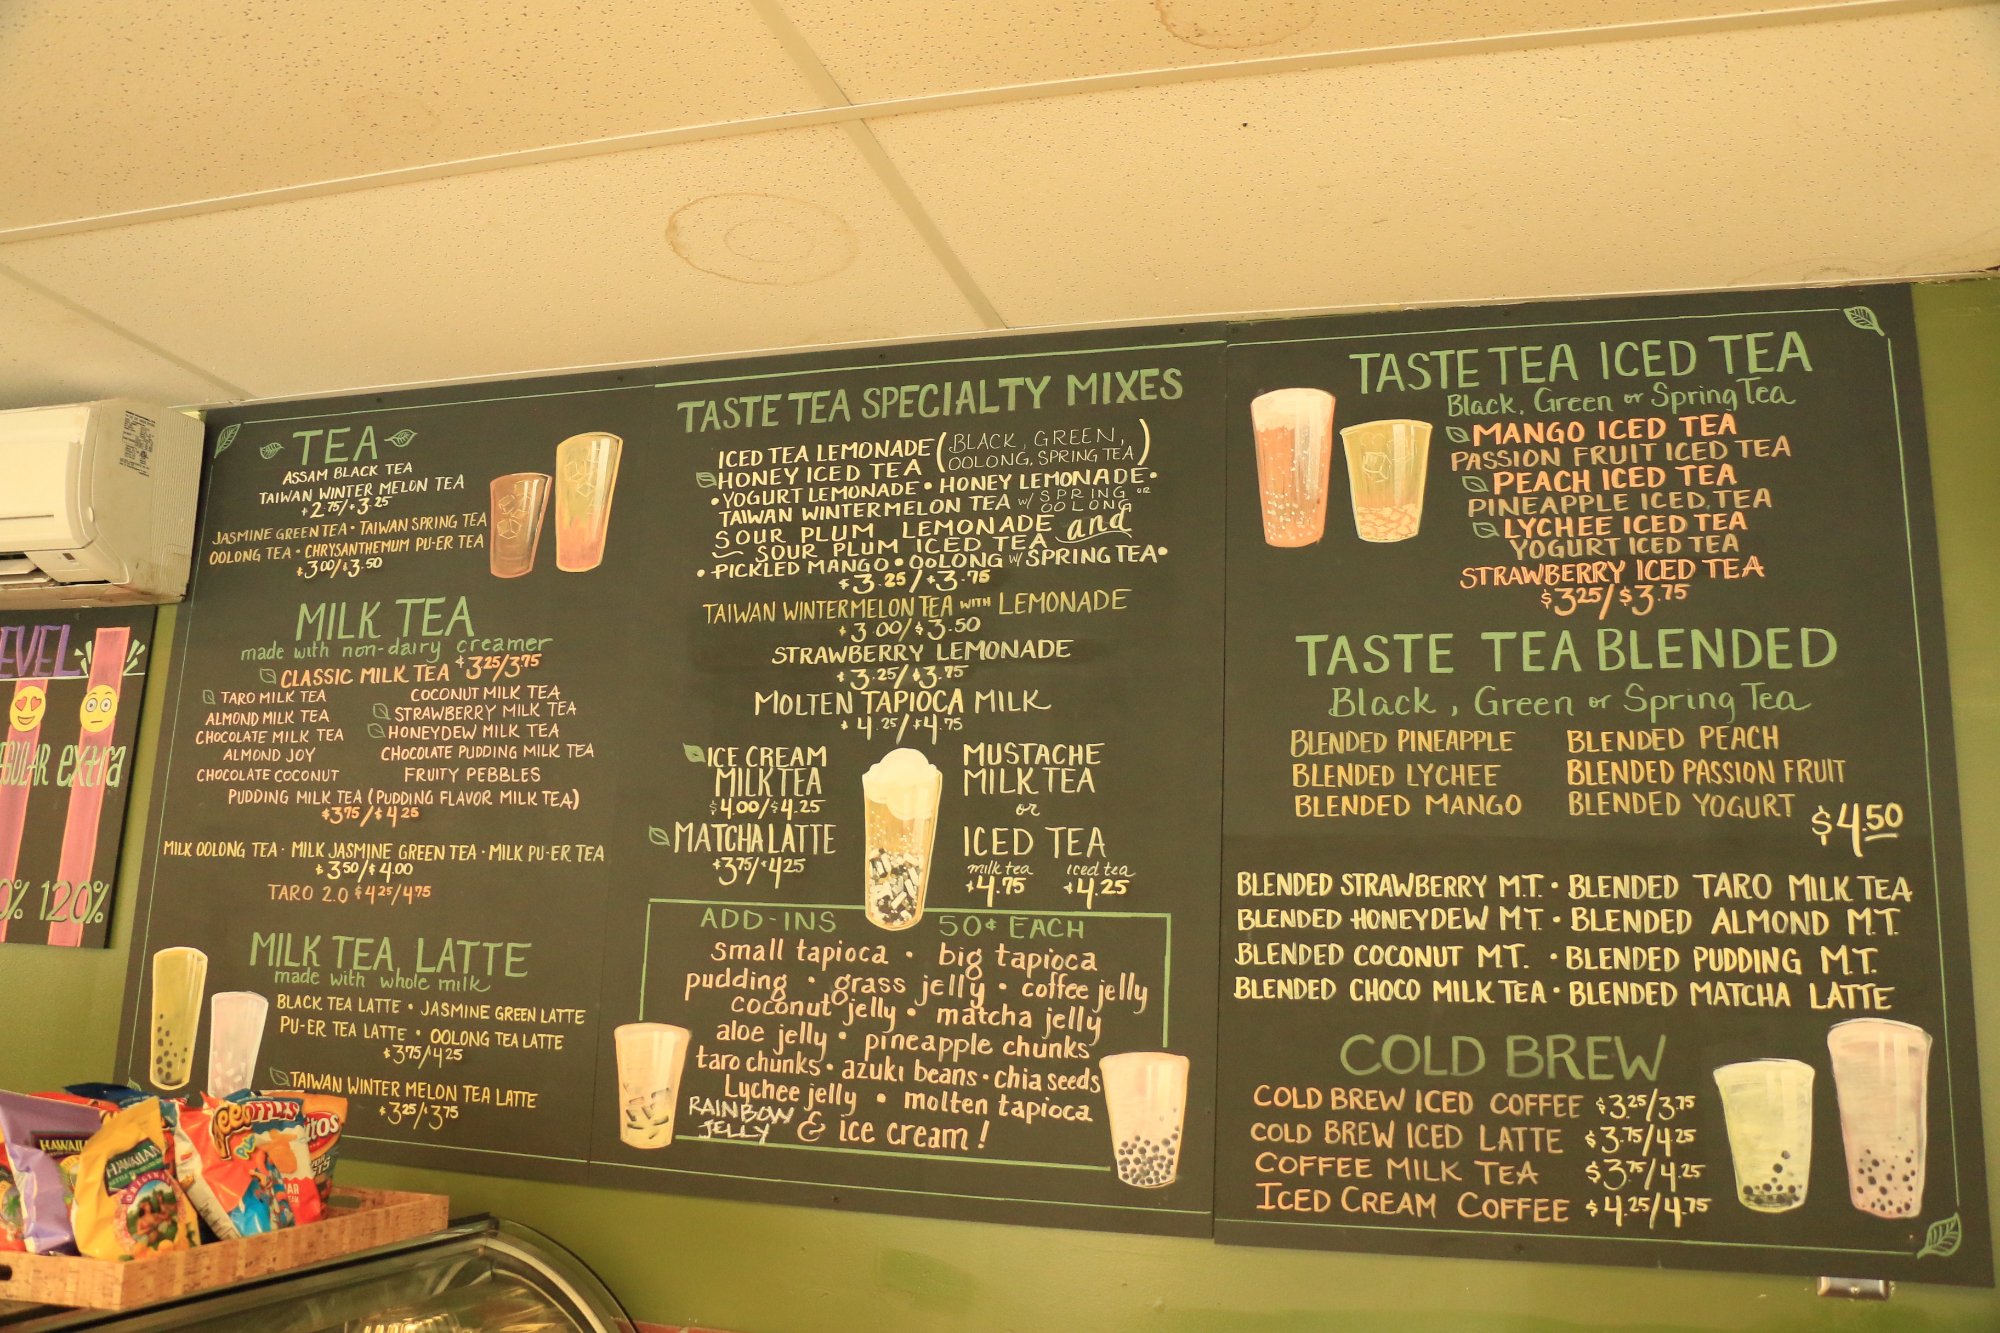 EVEL
GULAR extra
0% 120%
TEA
ASSAM BLACK TEA
TAIWAN WINTER MELON TEA
$2.75/$3.25
JASMINE GREEN TEA • TAIWAN SPRING TEA
OOLONG TEA • CHRYSANTHEMUM PU-ER TEA
$3.00/$3.50
MILK TEA
made with non-dairy creamer
CLASSIC MILK TEA $3.25/3.75
TARO MILK TEA
ALMOND MILK TEA
CHOCOLATE MILK TEA
ALMOND JOY
CHOCOLATE COCONUT
COCONUT MILK TEA
STRAWBERRY MILK TEA
HONEYDEW MILK TEA
CHOCOLATE PUDDING MILK TEA
FRUITY PEBBLES
PUDDING MILK TEA (PUDDING FLAVOR MILK TEA)
$3.75/$4.25
MILK OOLONG TEA • MILK JASMINE GREEN TEA • MILK PU-ER TEA
$3.50/$4.00
TARO 2.0 $4.25/4.75
MILK TEA LATTE
made with whole milk
BLACK TEA LATTE • JASMINE GREEN LATTE
PU-ER TEA LATTE • OOLONG TEA LATTE
$3.75/$4.25
TAIWAN WINTER MELON TEA LATTE
$3.25/$3.75
HAWAIIAN
ORIGINAL
TASTE TEA SPECIALTY MIXES
ICED TEA LEMONADE (BLACK, GREEN,
OOLONG, SPRING TEA)
HONEY ICED TEA
• YOGURT LEMONADE • HONEY LEMONADE •
TAIWAN WINTERMELON TEA w/ SPRING OR
OOLONG
SOUR PLUM LEMONADE and
SOUR PLUM ICED TEA
• PICKLED MANGO • OOLONG w/ SPRING TEA •
$3.25/$3.75
TAIWAN WINTERMELON TEA WITH LEMONADE
$3.00/$3.50
STRAWBERRY LEMONADE
$3.25/$3.75
MOLTEN TAPIOCA MILK
$4.25/$4.75
ICE CREAM
MILK TEA
$4.00/$4.25
MATCHA LATTE
$3.75/$4.25
MUSTACHE
MILK TEA
or
ICED TEA
milk tea iced tea
$4.75 $4.25
ADD-INS 50¢ EACH
small tapioca • big tapioca
pudding • grass jelly • coffee jelly
coconut jelly • matcha jelly
aloe jelly • pineapple chunks
taro chunks • azuki beans • chia seeds
Lychee jelly • molten tapioca
RAINBOW
JELLY & Ice cream!
TASTE TEA ICED TEA
Black, Green or Spring Tea
MANGO ICED TEA
PASSION FRUIT ICED TEA
PEACH ICED TEA
PINEAPPLE ICED TEA
LYCHEE ICED TEA
YOGURT ICED TEA
STRAWBERRY ICED TEA
$3.25/$3.75
TASTE TEA BLENDED
Black, Green or Spring Tea
BLENDED PINEAPPLE BLENDED PEACH
BLENDED LYCHEE BLENDED PASSION FRUIT
BLENDED MANGO BLENDED YOGURT
$4.50
BLENDED STRAWBERRY M.T. • BLENDED TARO MILK TEA
BLENDED HONEYDEW M.T. • BLENDED ALMOND M.T.
BLENDED COCONUT M.T. • BLENDED PUDDING M.T.
BLENDED CHOCO MILK TEA • BLENDED MATCHA LATTE
COLD BREW
COLD BREW ICED COFFEE $3.25/3.75
COLD BREW ICED LATTE $3.75/4.25
COFFEE MILK TEA $3.75/4.25
ICED CREAM COFFEE $4.25/4.75